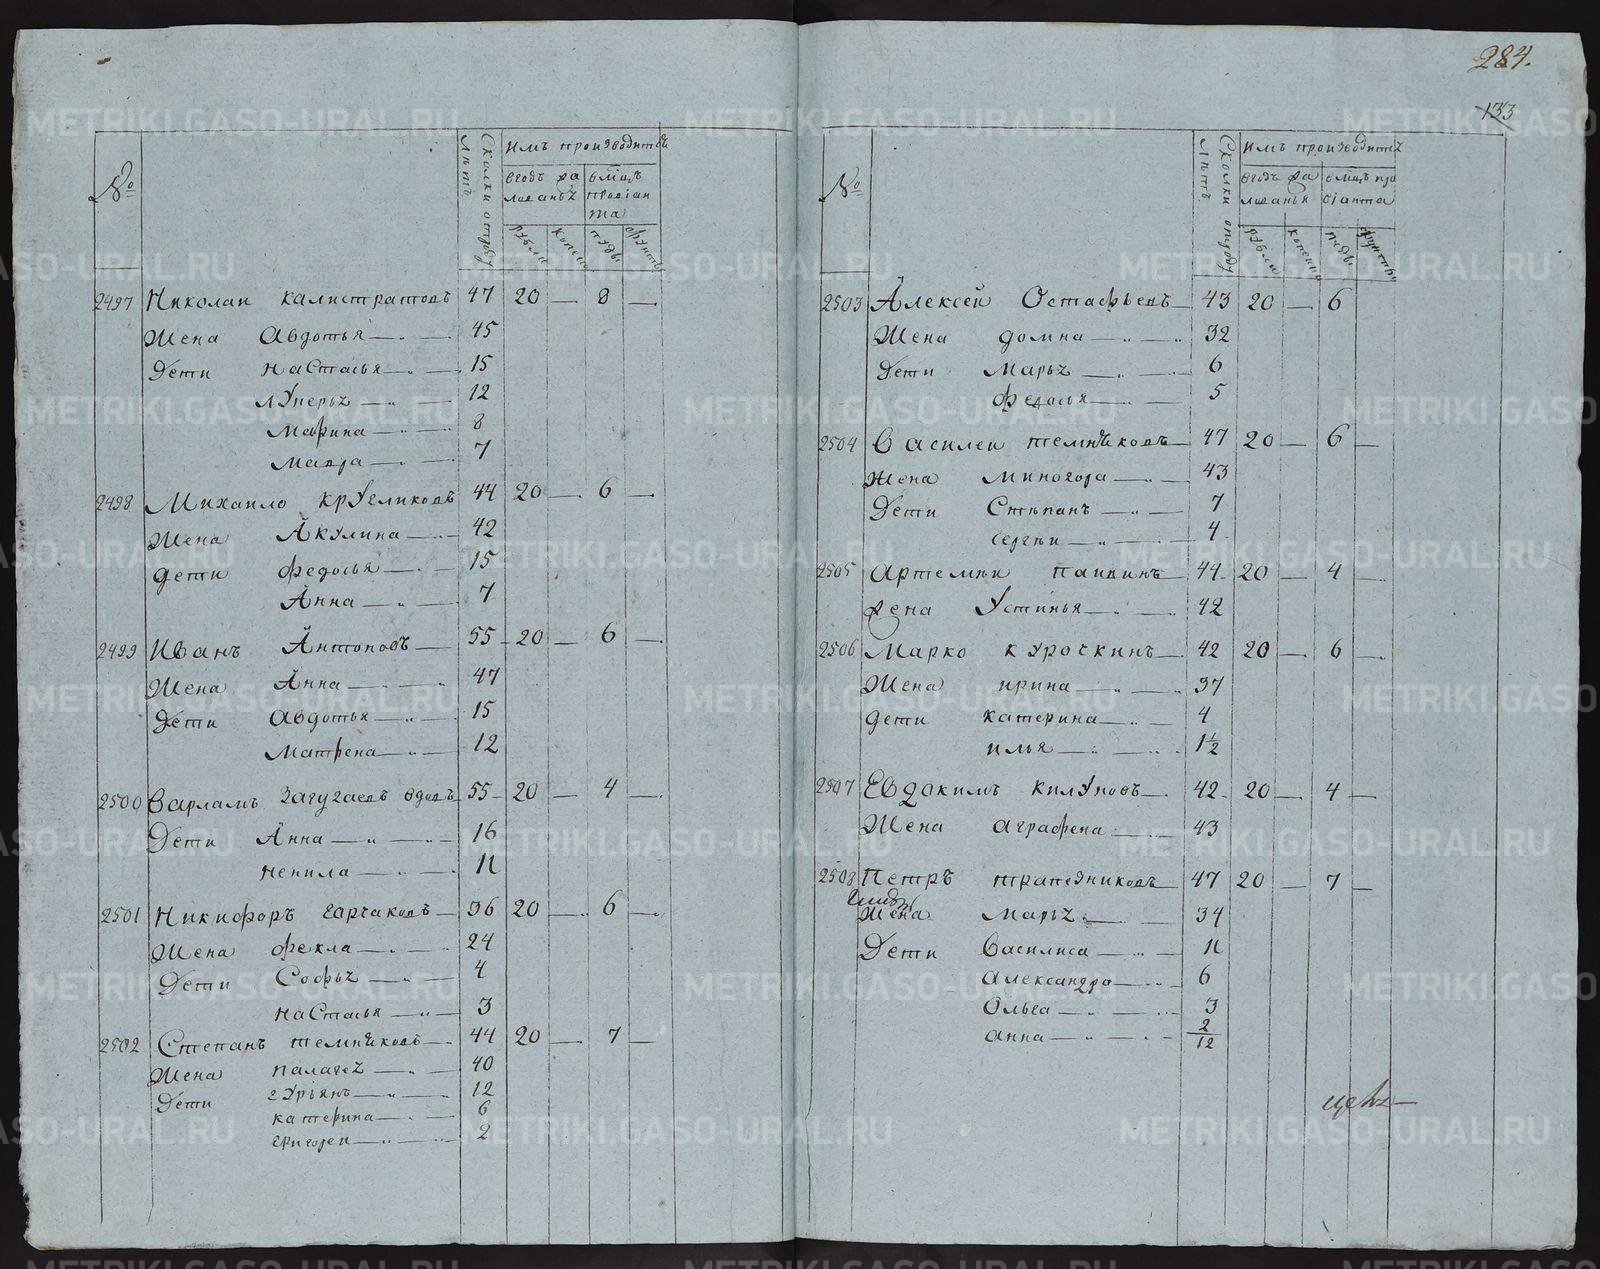 284.
133
№
Сколки отроду
Летъ
имъ производитъ
в годъ жа
лованья
в м͠цъ
провіан
та
рубли
копеекъ
пуды
фунты
2497 Николаи калистратовъ 47 20 — 8 —
Жена Авдотья 45
Дети настасья 15
лукерья 12
марина 8
мавра 7
2498 Михаило кругликовъ 44 20 — 6 —
Жена Акулина 42
дети федосья 15
Анна 7
2499 Иванъ Антоновъ 55 20 — 6 —
Жена Анна 47
Дети авдотья 15
матрена 12
2500 варламъ вдовъ 55 20 — 4 —
Дети Анна 16
ненила 11
2501 Никифоръ горчаковъ 36 20 — 6 —
Жена фекла 24
Дети Софья 4
настасья 3
2502 Степанъ темниковъ 44 20 — 7 —
Жена палагея 40
Дети гурьянъ 12
катерина 6
григореи 2
№
Сколки отроду
Летъ
имъ производитъ
в годъ жа
лованья
в м͠цъ про
віанта
рубли
копеики
пуды
фунты
2503 Алексеи Остафьевъ 43 20 — 6
Жена домна 32
Дети марья 6
федосья 5
2504 василеи темниковъ 47 20 — 6 —
Жена миногора 43
Дети Степанъ 7
сергеи 4
2505 Артемеи 44 20 — 4 —
жена устинья 42
2506 Марко курочкинъ 42 20 — 6 —
Жена ирина 37
дети катерина 4
илья 1½
2507 Евдокимъ килуновъ 42 20 — 4 —
Жена аграфена 43
2508 Петръ трапезниковъ 47 20 — 7 —
Жена марья 34
Дети василиса 11
александра 6
ольга 3
анна 2/12